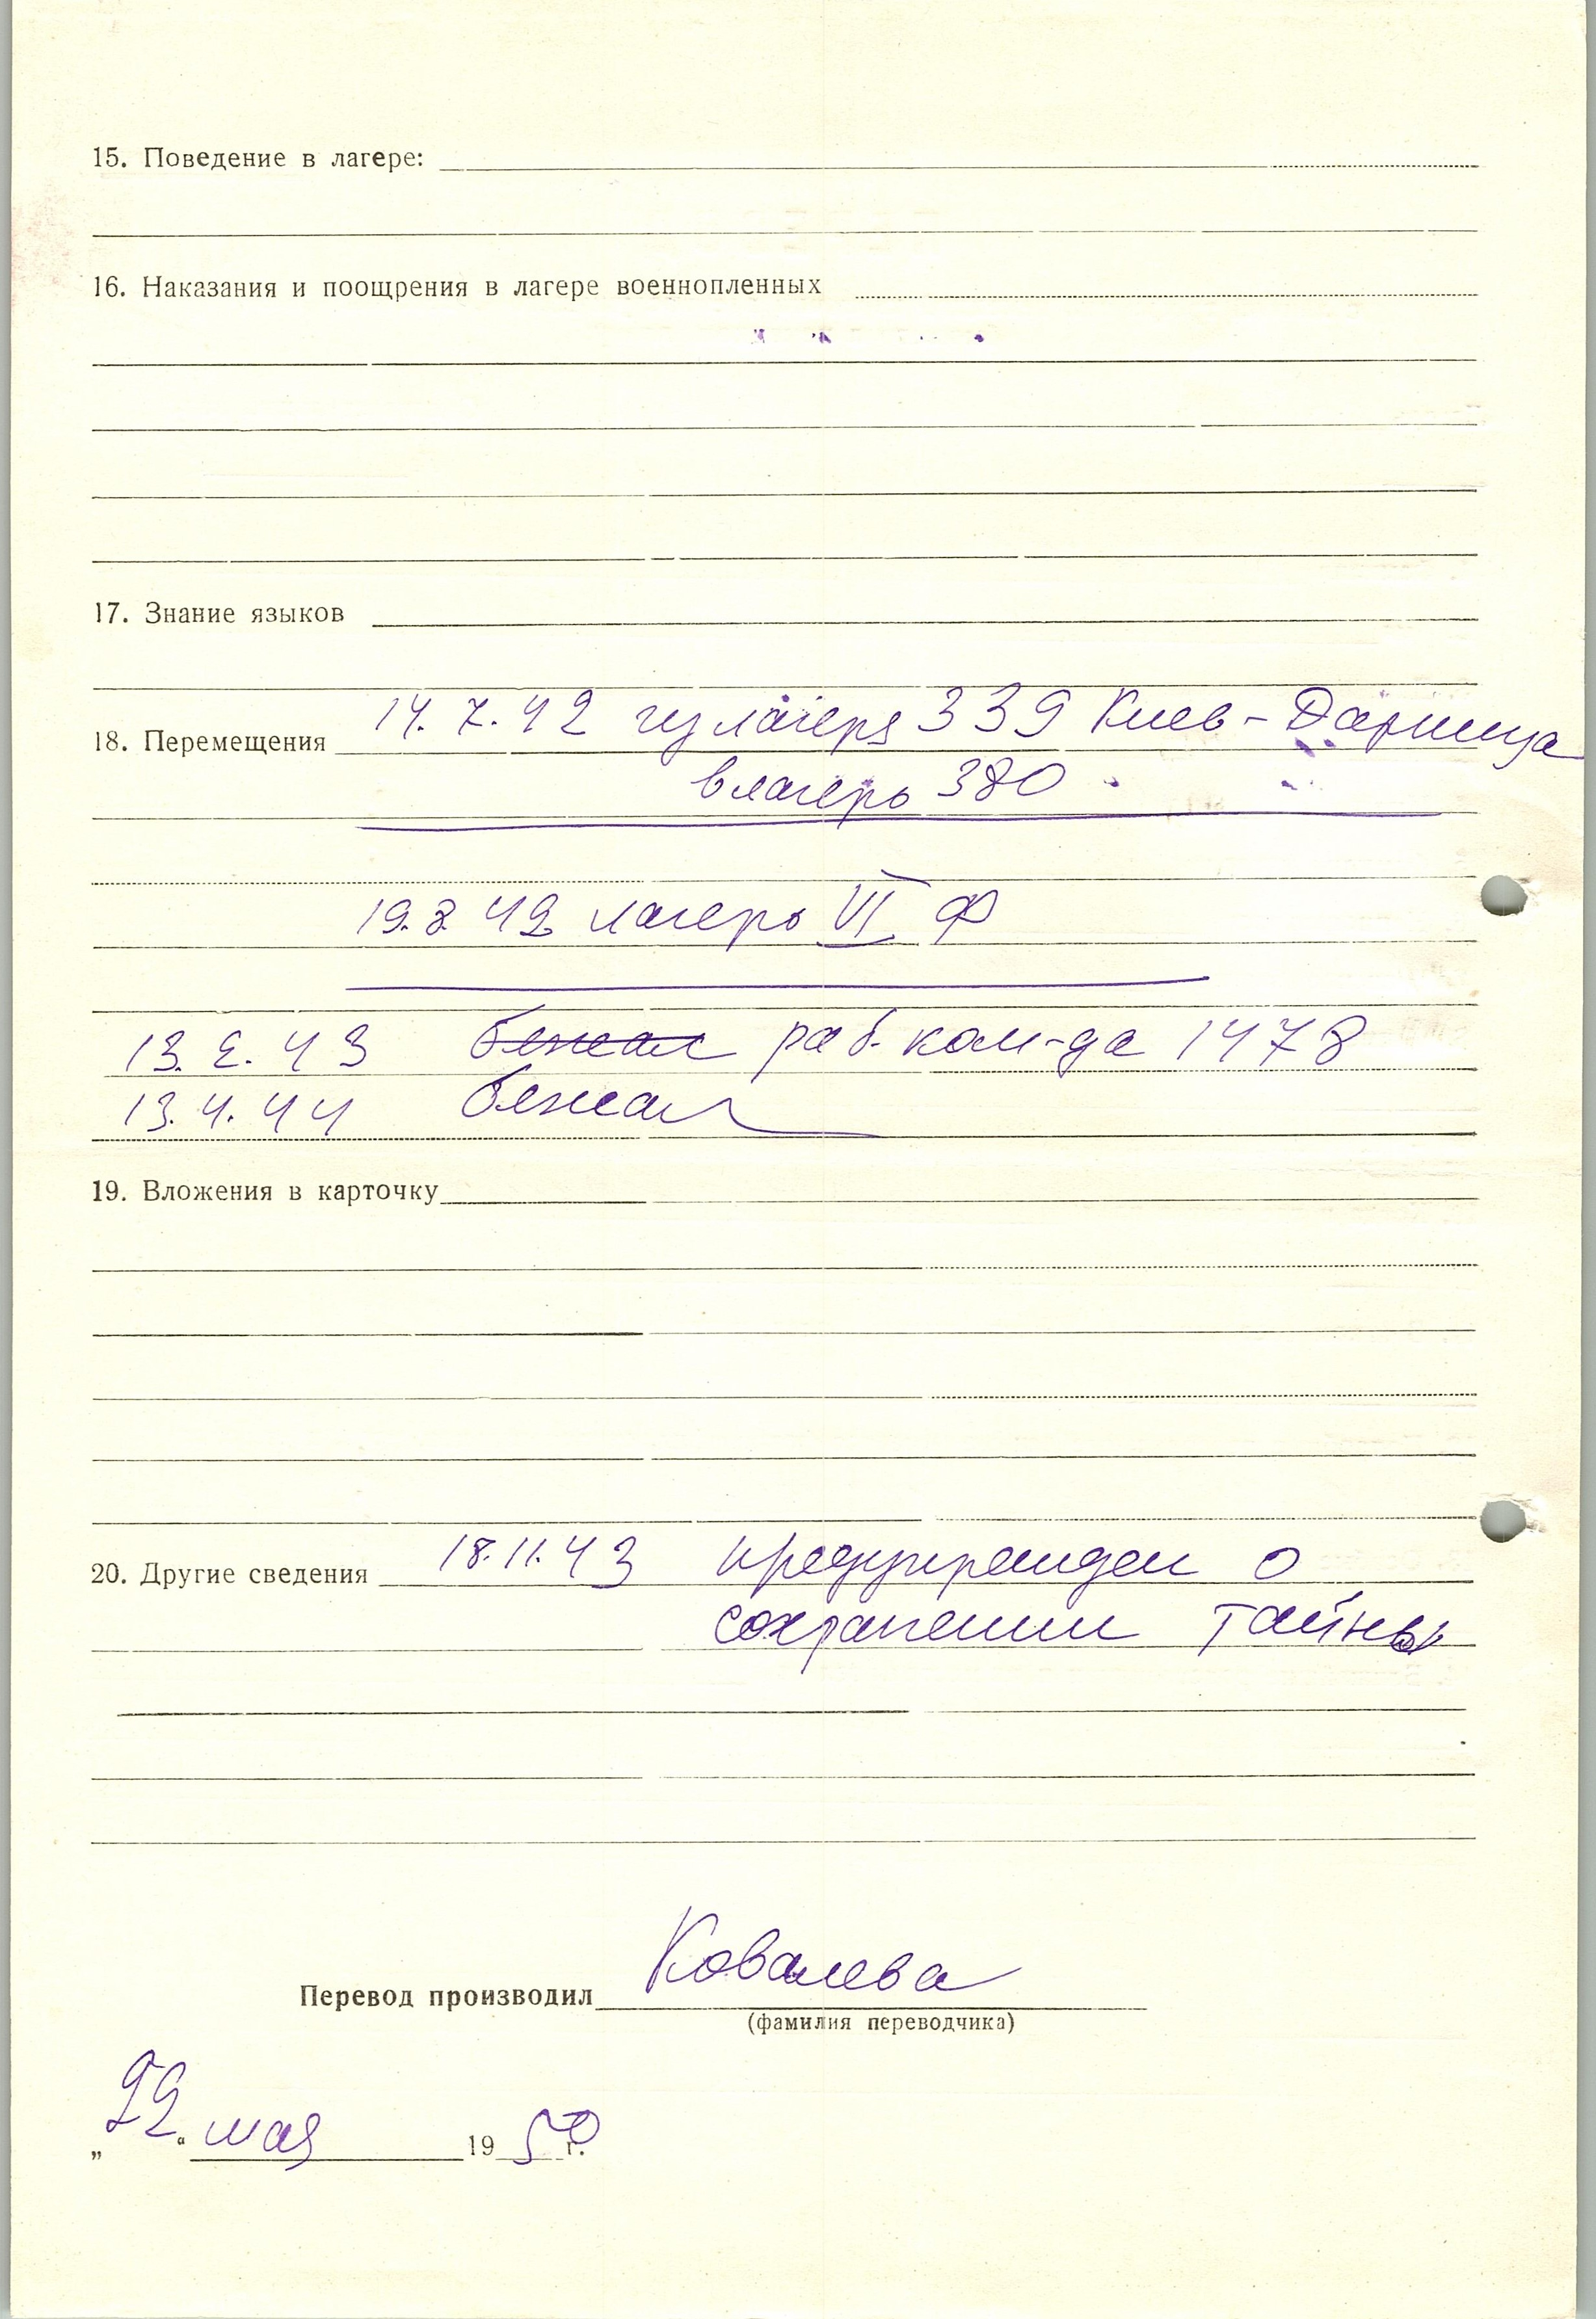 15. Поведение в лагере:
16. Наказания и поощрения в лагере военнопленных
17. Знание языков
14.7.42 из лагеря 339 Киев-Дарница
18. Перемещения
в лагерь 380
19.8.42 лагерь VI Ф
13.2.43 бежал раб. ком-да 1478
13.4.44 бежал
19. Вложения в карточку
20. Другие сведения 18.11.43 предупрежден о
сохранении тайны
Перевод производил Ковалева
(фамилия переводчика)
„22“ мая 1950 г.